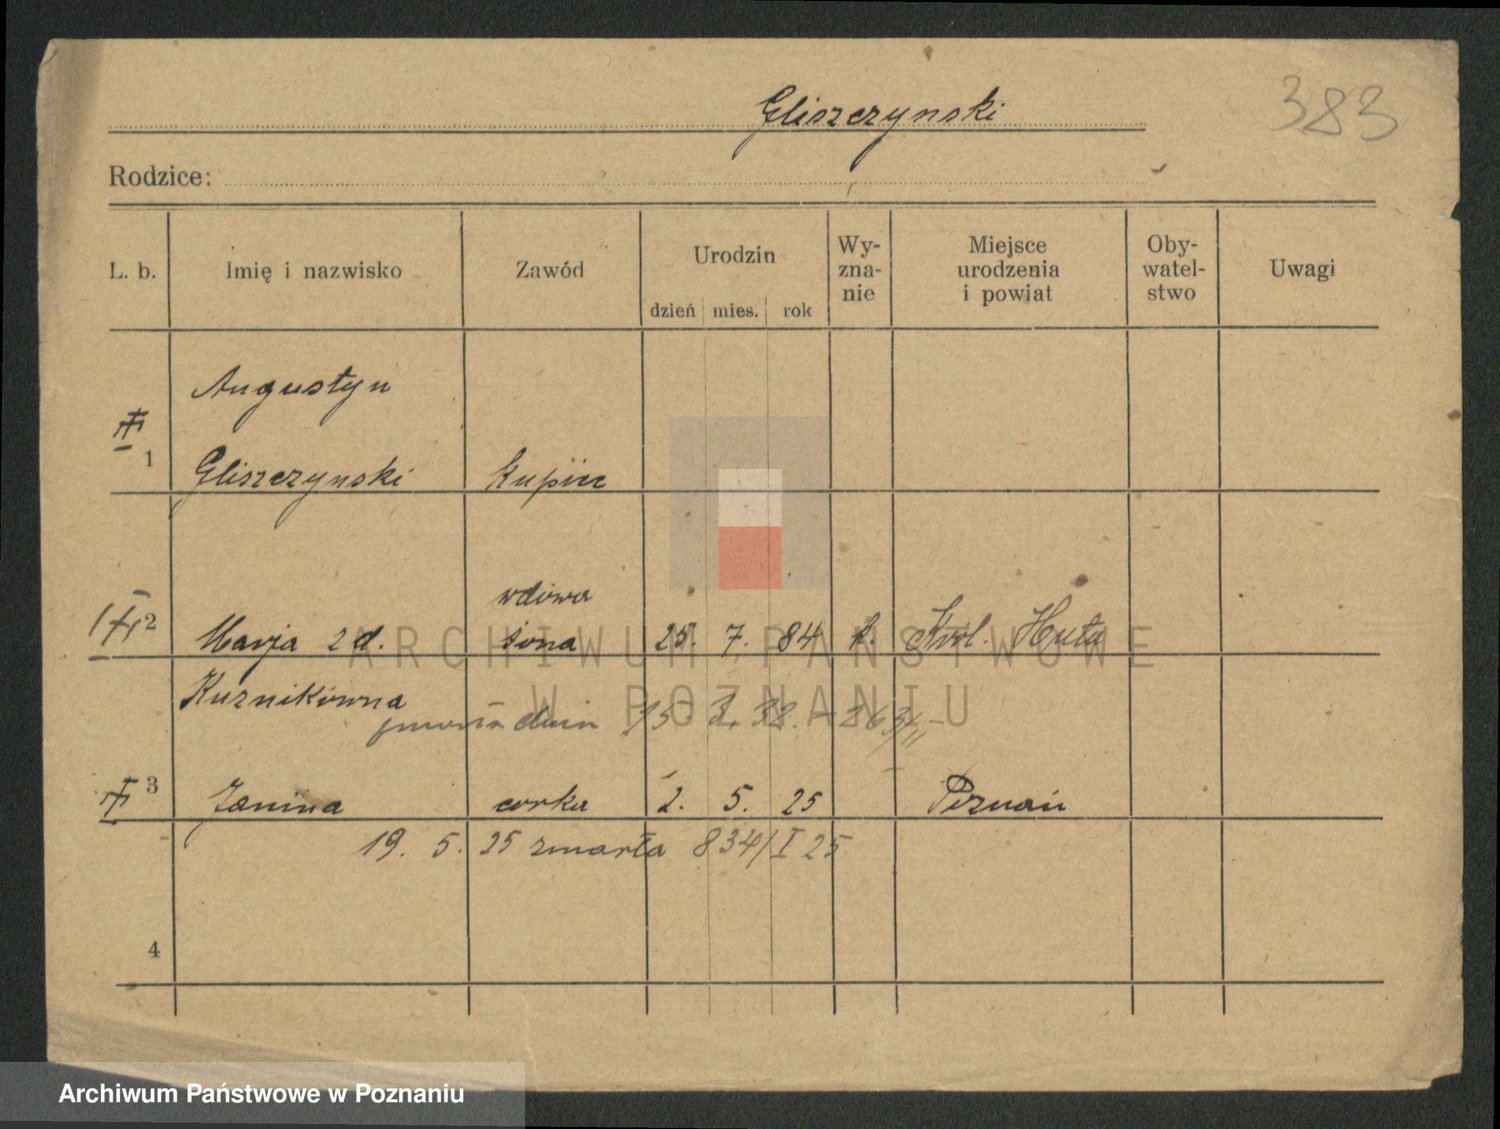 Gliszczynski
383
Rodzice:
L. b.
Imię i nazwisko
Zawód
Urodzin
dzień mies. rok
Wy-
zna-
nie
Miejsce
urodzenia
i powiat
Oby-
watel-
stwo
Uwagi
Augustyn
1
Gliszczynski kupiec
wdowa
2 Marja 2 d. żona 25. 7. 84 k. Krol. Huta
Kuznikówna
dnia
3 Janina corka 2. 5. 25 Poznań
19. 5. 25 zmarła 834/I 25
4
ARCHIWUM PAŃSTWOWE
W POZNANIU
Archiwum Państwowe w Poznaniu